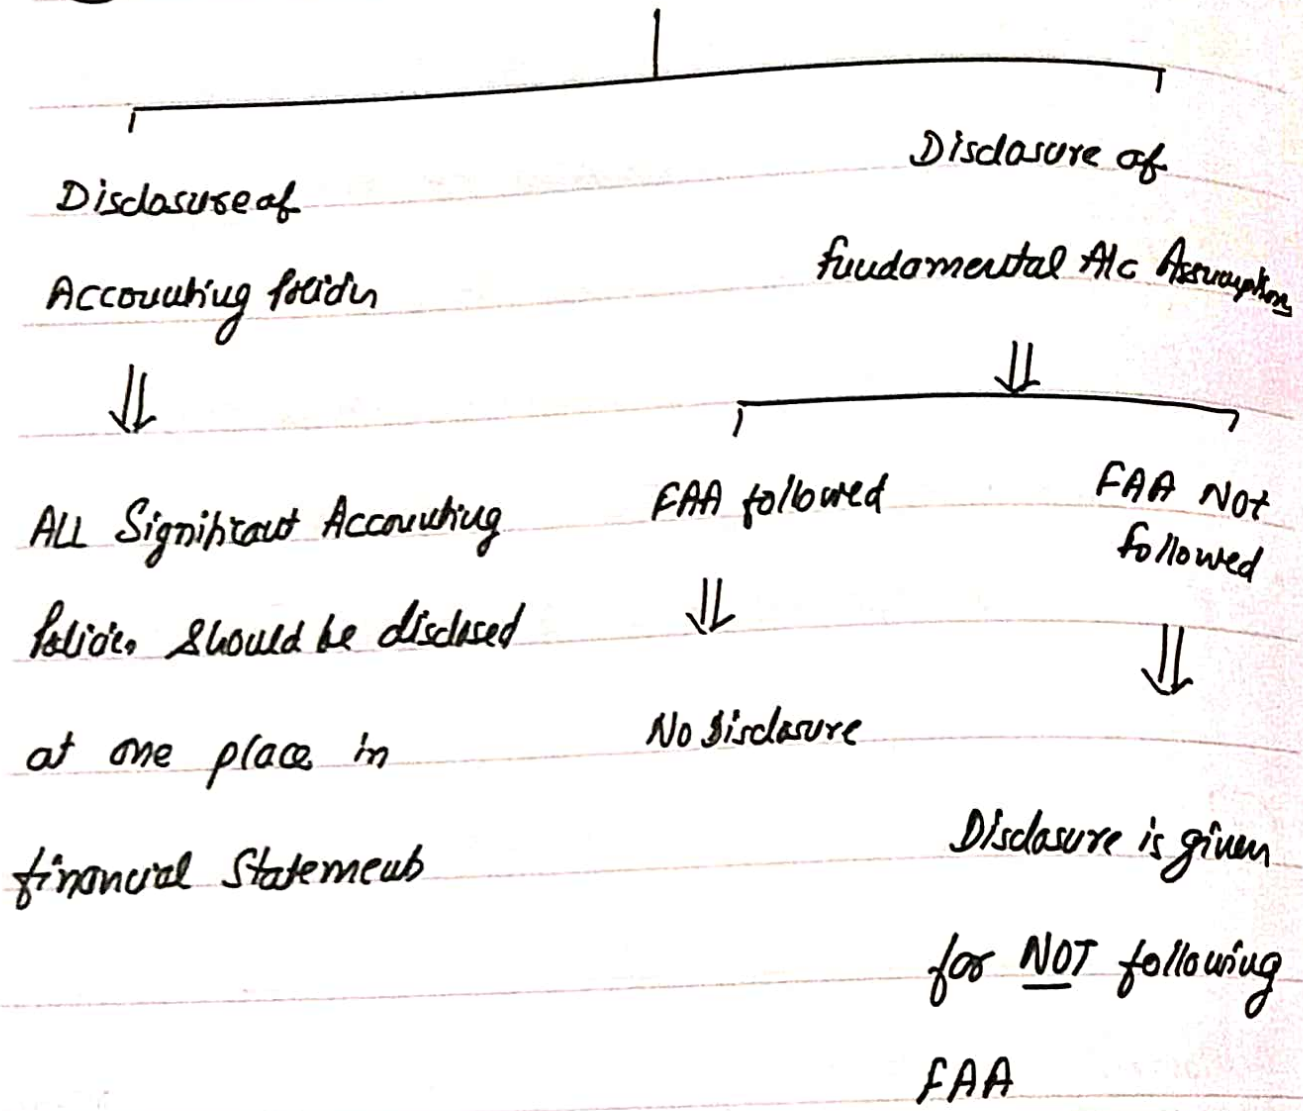 Disclosure of
Accounting Policies
⇓
ALL Significant Accounting
Policies should be disclosed
at one place in
financial Statements
Disclosure of
fundamental A/c Assumptions
⇓
FAA followed
⇓
No Disclosure
FAA Not
followed
⇓
Disclosure is given
for NOT following
FAA